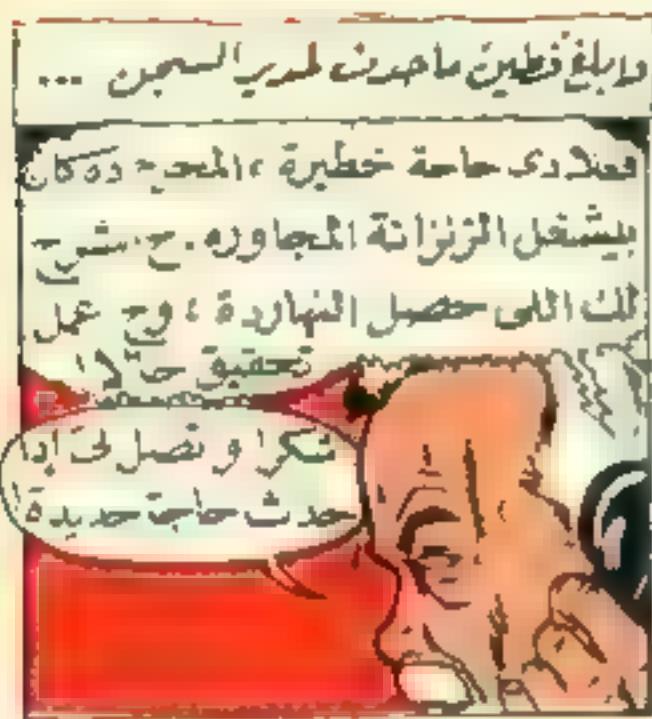 وابلغ فطين ما حدث لمدير السجن ...
فعلا دى حاجة خطيرة ، المحبوس ده كان
بيشغل الزنزانة المجاوره . ح اشرح
لك اللى حصل النهاردة ، وح عمل
تحقيق حالا
شكرا و تصل بى إذا
حدث حاجة جديدة